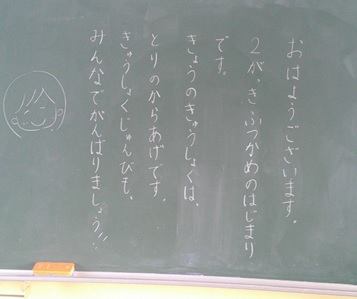 おはようございます。
2がっきふつかめのはじまり
です。
きょうのきゅうしょくは、
とりのからあげです。
きゅうしょくじゅんびも、
みんなでがんばりましょう!!